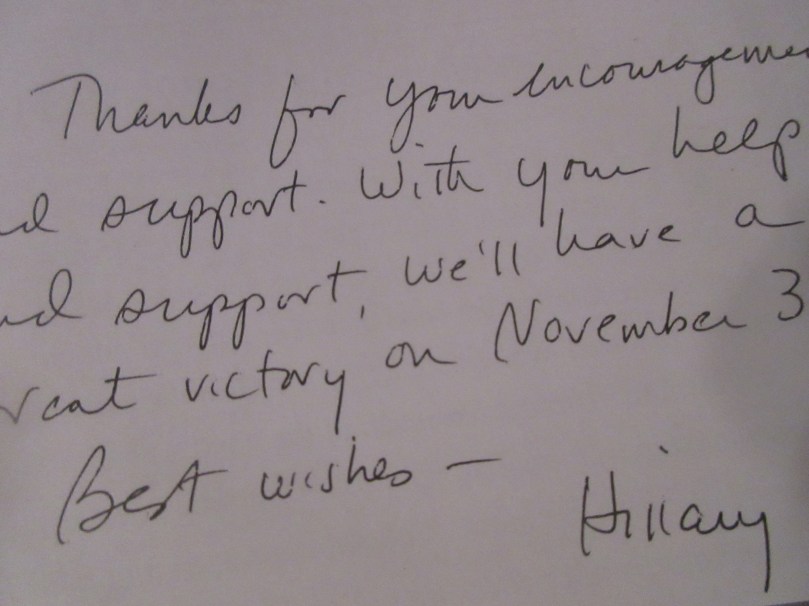 Thanks for your encourageme
nd support. With your help
nd support, we'll have a
reat victory on November 3
Best wishes —
Hillary